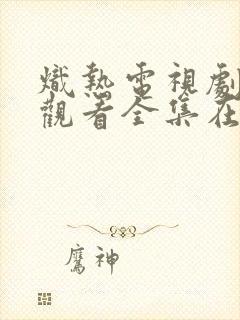 熾熱電視劇
觀看全集在
鷹神